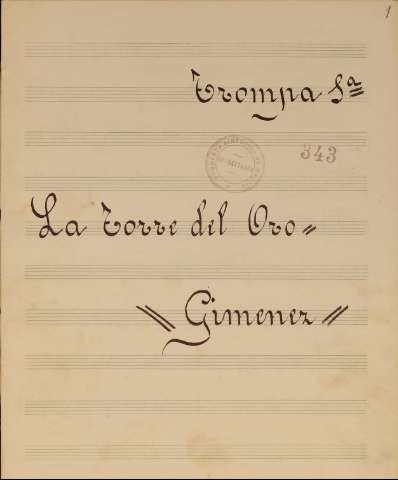 1
Trompa 1ª
343
La Torre del Oro
Gimenez